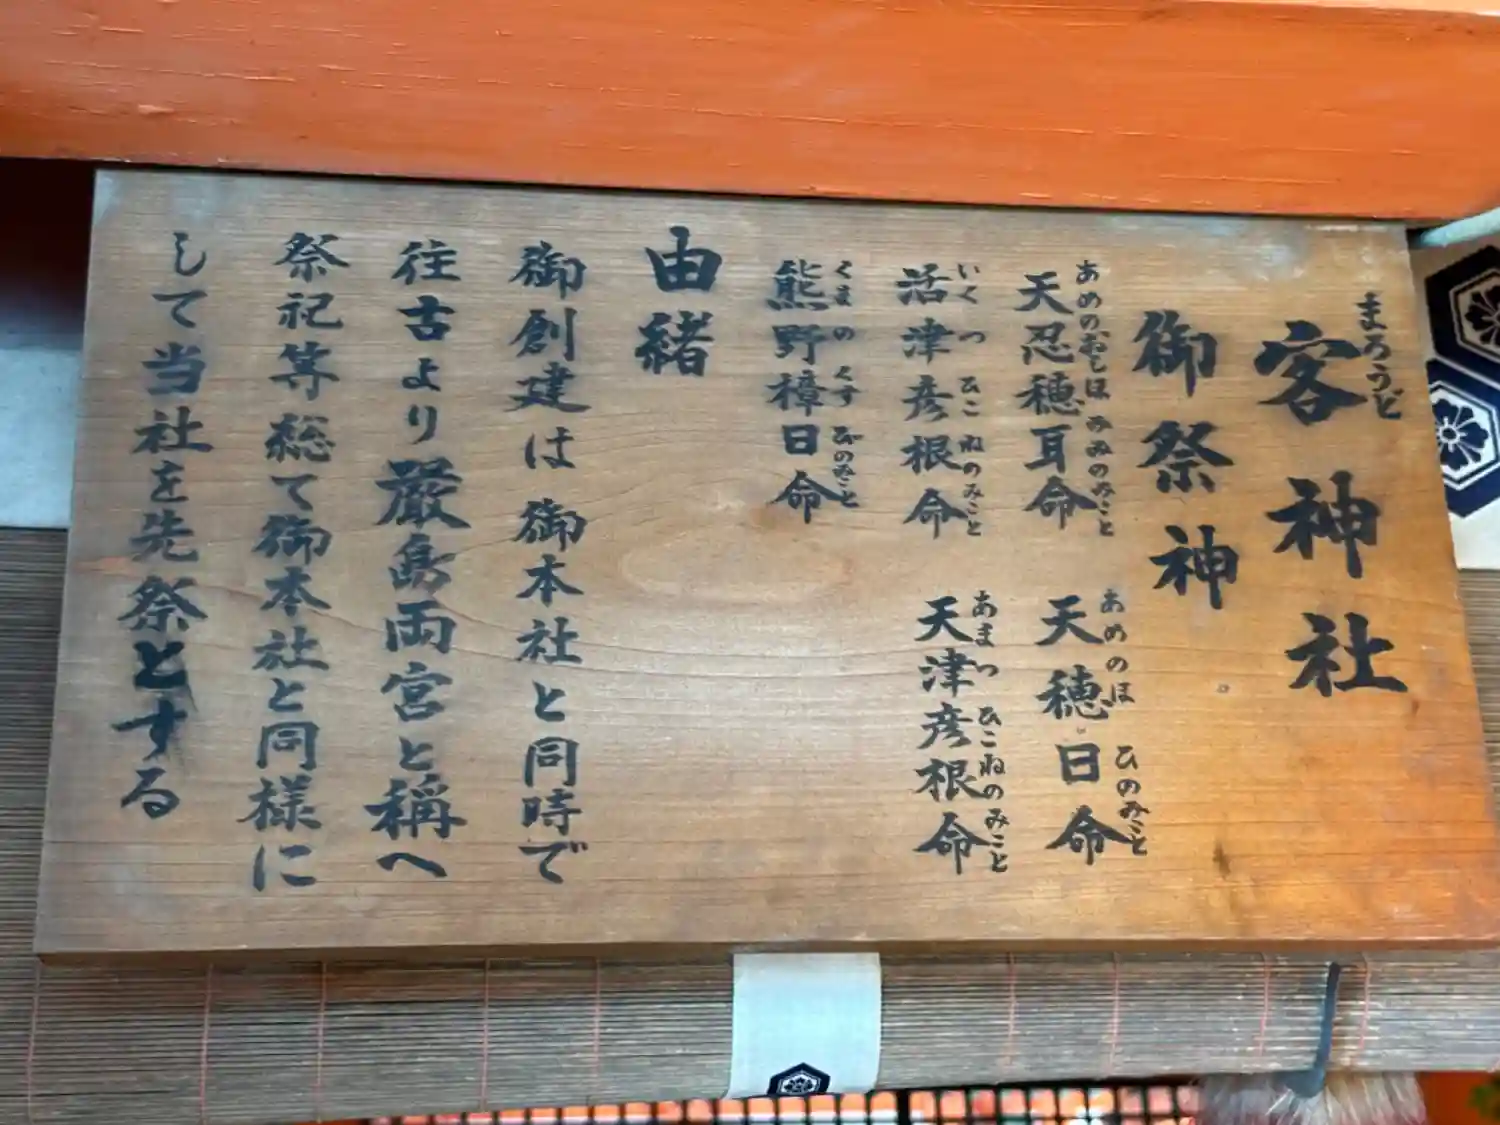 客神社
まろうど
御祭神
天忍穂耳命 天穂日命
あめのおしほみみのみこと あめのほひのみこと
活津彦根命 天津彦根命
いくつひこねのみこと あまつひこねのみこと
熊野樟日命
くまのくすびのみこと
由緒
御創建は御本社と同時で
往古より厳島両宮と稱へ
祭祀等総て御本社と同様に
して当社を先祭とする